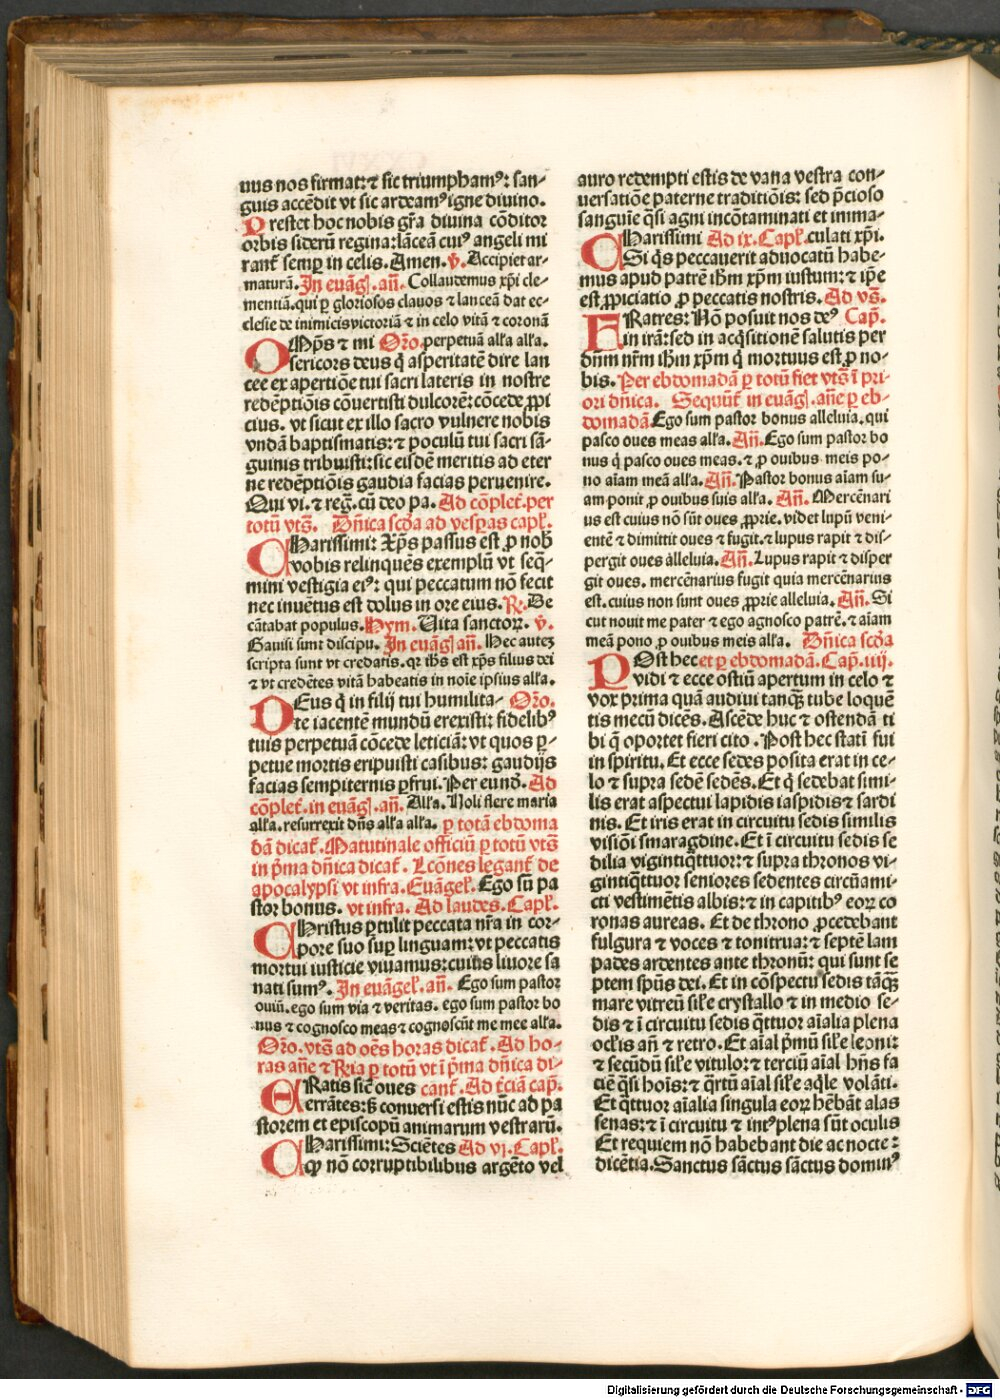 uus nos firmat: ⁊ sic triumphamꝰ: san-
guis accēdit vt sic ardeamꝰ igne diuino.
Prestet hoc nobis gr̄a diuina cōditor
orbis siderū regina: lāceā cuiꝰ angeli mi
rant̄ semꝑ in celis. Amen. v̄. Accipiet ar-
maturā. In euāgl̄. an̄. Collaudemus xp̄i cle-
mentiā. qui ꝑ gloriosos clauos ⁊ lanceā dat ec-
clesie de inimicis victoriā ⁊ in celo vitā ⁊ coronā
OMp̄s ⁊ mi Or̄o. perpetuā all'a all'a.
sericors deus q̄ asperitatē dire lan
cee ex apertiōe tui sacri lateris in nostre
redēptiōis cōuertisti dulcorē: cōcede ꝓpi
cius. vt sicut ex illo sacro vulnere nobis
vndā baptismatis: ⁊ poculū tui sacri sā-
guinis tribuisti: sic eisdē meritis ad eter
ne redēptiōis gaudia facias peruenire.
Qui vi. ⁊ reg. cū deo pa. Ad cōplet̄. per
totū vts̄. Dn̄ica scd̄a ad vesꝑas capl̄.
CHarissimi: Xp̄s passus est ꝓ nob̄
vobis relinquēs exemplū vt seq̄-
mini vestigia eiꝰ: qui peccatum nō fecit
nec inuētus est dolus in ore eius. R̄. De
cātabat populus. Hym. Uita sanctoꝝ. v̄.
Gauisi sunt discipu. In euāgl̄ an̄. Hec autez
scripta sunt vt credatis. qꝛ ih̄s est xp̄s filius dei
⁊ vt credētes vitā habeatis in noīe ipsius all'a.
DEus q̄ in filij tui humilita- Or̄o.
te iacentē mundū erexisti: fidelibꝰ
tuis perpetuā cōcede leticiā: vt quos ꝑ-
petue mortis eripuisti casibus: gaudijs
facias sempiternis ꝑfrui. Per eund̄. Ad
cōplet̄. in euāgl̄. an̄. All'a. Noli flere maria
all'a. resurrexit dn̄s all'a all'a. ꝑ totā ebdoma
dā dicat̄. Matutinale officiū ꝑ totū vts̄
in p̄ma dn̄ica dicat̄. Lcōnes legant̄ de
apocalypsi vt infra. Euāgel̄. Ego sū pa
stor bonus. vt infra. Ad laudes. Capl̄.
CHristus ꝑtulit peccata nr̄a in cor-
pore suo suꝑ linguam: vt peccatis
mortui iusticie viuamus: cuius liuore sa
nati sumꝰ. In euāgel̄. an̄. Ego sum pastor
ouiū. ego sum via ⁊ veritas. ego sum pastor bo
nus ⁊ cognosco meas ⁊ cognoscūt me mee all'a.
Or̄o. vts̄ ad oēs horas dicat̄. Ad ho-
ras an̄e ⁊ R̄ria ꝑ totū vt ī p̄ma dn̄ica di-
ERatis sic̄ oues cant̄. Ad t̄ciā cap̄.
errātes: s̄ conuersi estis nūc ad pa
storem et episcopū animarum vestrarū.
CHarissimi: Sciētes Ad vi. Capl̄.
qꝙ nō corruptibilibus argēto vel
auro redempti estis de vana vestra con-
uersatiōe paterne traditiōis: sed p̄cioso
sanguīe q̄si agni incōtaminati et imma-
CHarissimi Ad ix. Capl̄. culati xp̄i.
Si q̄s peccauerit aduocatū habe-
mus apud patrē ih̄m xp̄m iustum: ⁊ ip̄e
est ꝓpiciatio ꝓ peccatis nostris. Ad vs̄.
FRatres: Nō posuit nos deꝰ Cap̄.
in irā: sed in acq̄sitionē salutis per
dn̄m nr̄m ih̄m xp̄m q̄ mortuus est ꝓ no-
bis. Per ebdomadā ꝑ totū fiet vts̄ ī pri-
ori dn̄ica. Sequūt̄ in euāgl̄. an̄e ꝑ eb-
domadā Ego sum pastor bonus alleluia. qui
pasco oues meas all'a. An̄. Ego sum pastor bo
nus q̄ pasco oues meas. ⁊ ꝓ ouibus meis po-
no aīam meā all'a. An̄. Pastor bonus aīam su-
am ponit ꝓ ouibus suis all'a. An̄. Mercēnari
us est cuius nō sūt oues ꝓprie. videt lupū veni-
entē ⁊ dimittit oues ⁊ fugit. ⁊ lupus rapit ⁊ dis-
pergit oues alleluia. An̄. Lupus rapit ⁊ disper
git oues. mercēnarius fugit quia mercēnarius
est. cuius non sunt oues ꝓprie alleluia. An̄. Si
cut nouit me pater ⁊ ego agnosco patrē. ⁊ aīam
meā pono ꝓ ouibus meis all'a. Dn̄ica scd̄a
POst hec et ꝑ ebdomadā. Cap̄. iiij.
vidi ⁊ ecce ostiū apertum in celo ⁊
vox prima quā audiui tanqꝫ tube loquē
tis mecū dicēs. Ascēde huc ⁊ ostendā ti
bi q̄ oportet fieri cito. Post hec statī fui
in spiritu. Et ecce sedes posita erat in ce-
lo ⁊ supra sedē sedēs. Et q̄ sedebat simi-
lis erat aspectui lapidis iaspidis ⁊ sardi
nis. Et iris erat in circuitu sedis similis
visiōi smaragdine. Et ī circuitu sedis se
dilia vigintiq̄ttuor: ⁊ supra thronos vi-
gintiq̄ttuor seniores sedentes circūami-
cti vestimētis albis: ⁊ in capitibꝰ eoꝝ co
ronas aureas. Et de throno ꝓcedebant
fulgura ⁊ voces ⁊ tonitrua: ⁊ septē lam
pades ardentes ante thronū: qui sunt se
ptem sp̄us dei. Et in cōspectu sedis tāqꝫ
mare vitreū sil'e crystallo ⁊ in medio se-
dis ⁊ ī circuitu sedis q̄ttuor aīalia plena
ocl̄is an̄ ⁊ retro. Et aīal p̄mū sil'e leoni:
⁊ secūdū sil'e vitulo: ⁊ terciū aīal hn̄s fa
ciē q̄si hoīs: ⁊ q̄rtū aīal sil'e aq̄le volāti.
Et q̄ttuor aīalia singula eoꝝ hēbāt alas
senas: ⁊ ī circuitu ⁊ intꝰ plena sūt oculis
Et requiem nō habebant die ac nocte:
dicētia. Sanctus sāctus sāctus dominꝰ
Digitalisierung gefördert durch die Deutsche Forschungsgemeinschaft - DFG